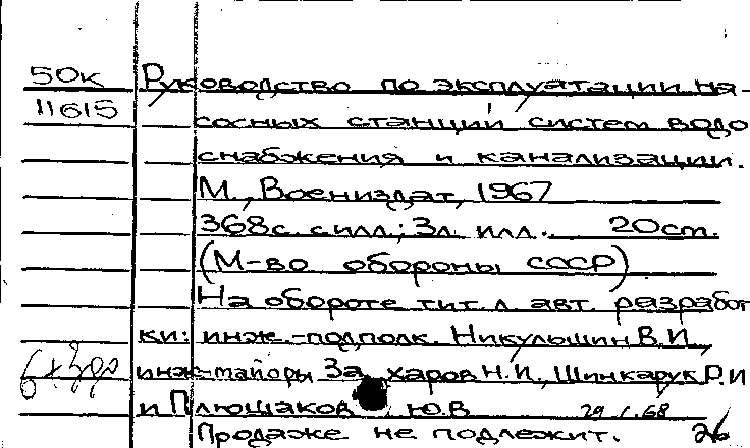 50к Руководство по эксплуатации на-
11615 сосных станций систем водо
снабжения и канализации.
М., Воениздат, 1967
368с. с илл.; 3л. илл. 20см.
(М-во обороны СССР)
На обороте тит. л. авт. разработ
ки: инж.-подполк. Никульшин В.И.,
инж-майоры Захаров Н.И., Шинкарук Р.И
и Плющаков Ю.В 29/I.68
Продаже не подлежит. 26